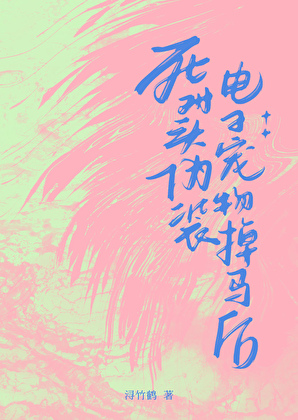 死对头伪装
电子宠物掉马后
浔竹鹤 著